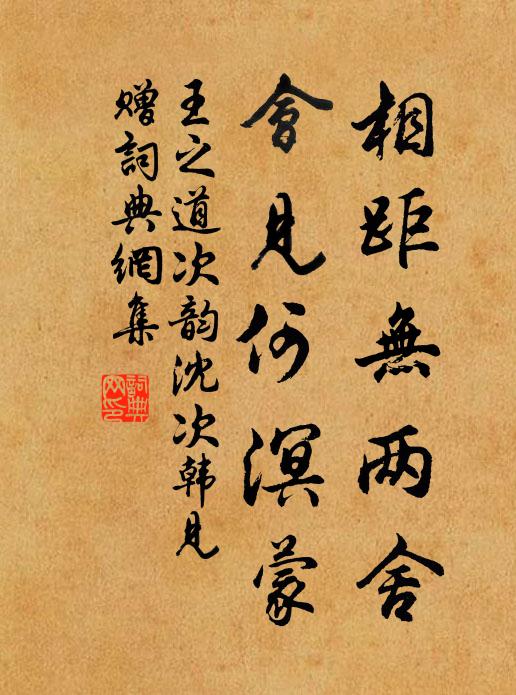 相距無两舍
會見何溟蒙
王之道次韵沈次韩見
赠詞典網集
詞典
网印